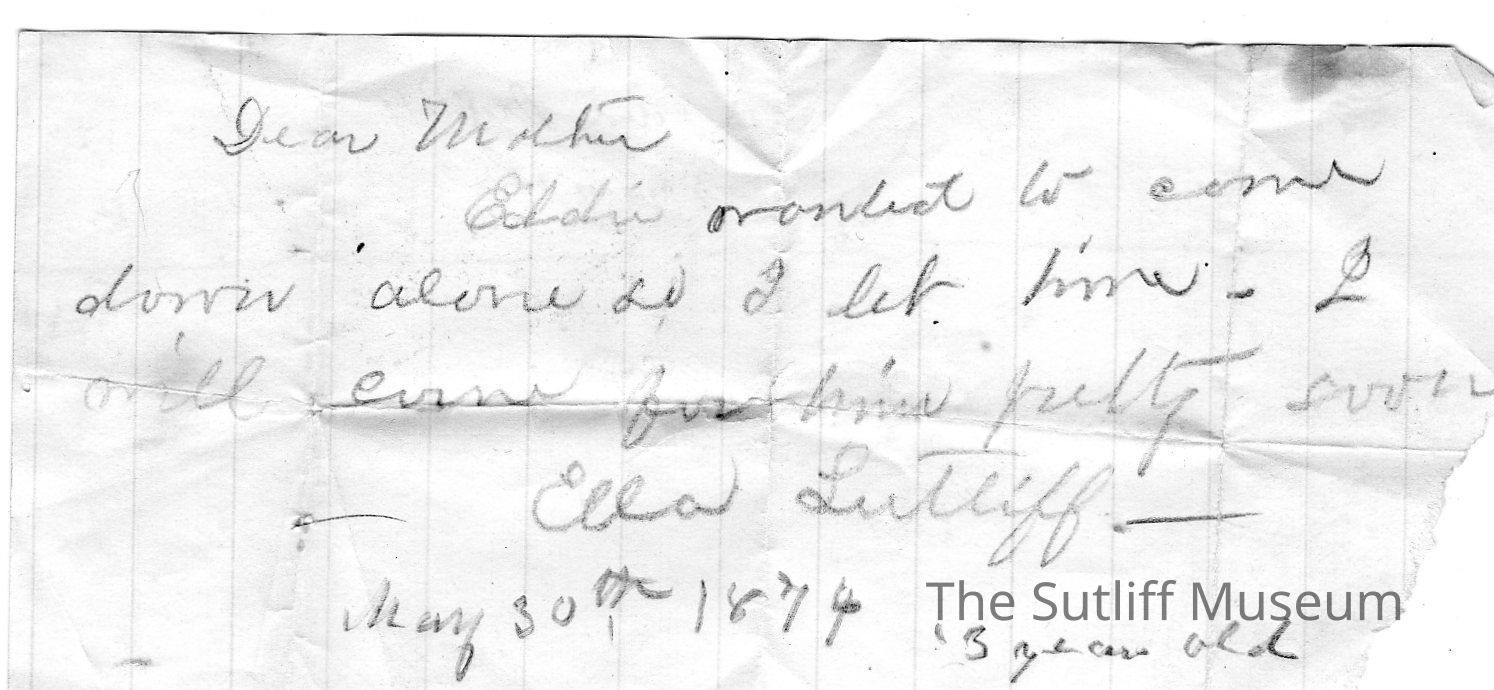 Dear Mother
Eddie wanted to come
down alone so I let him - I
will come for him pretty soon
— Ella Sutliff. —
May 30th 1874
The Sutliff Museum
3 year old